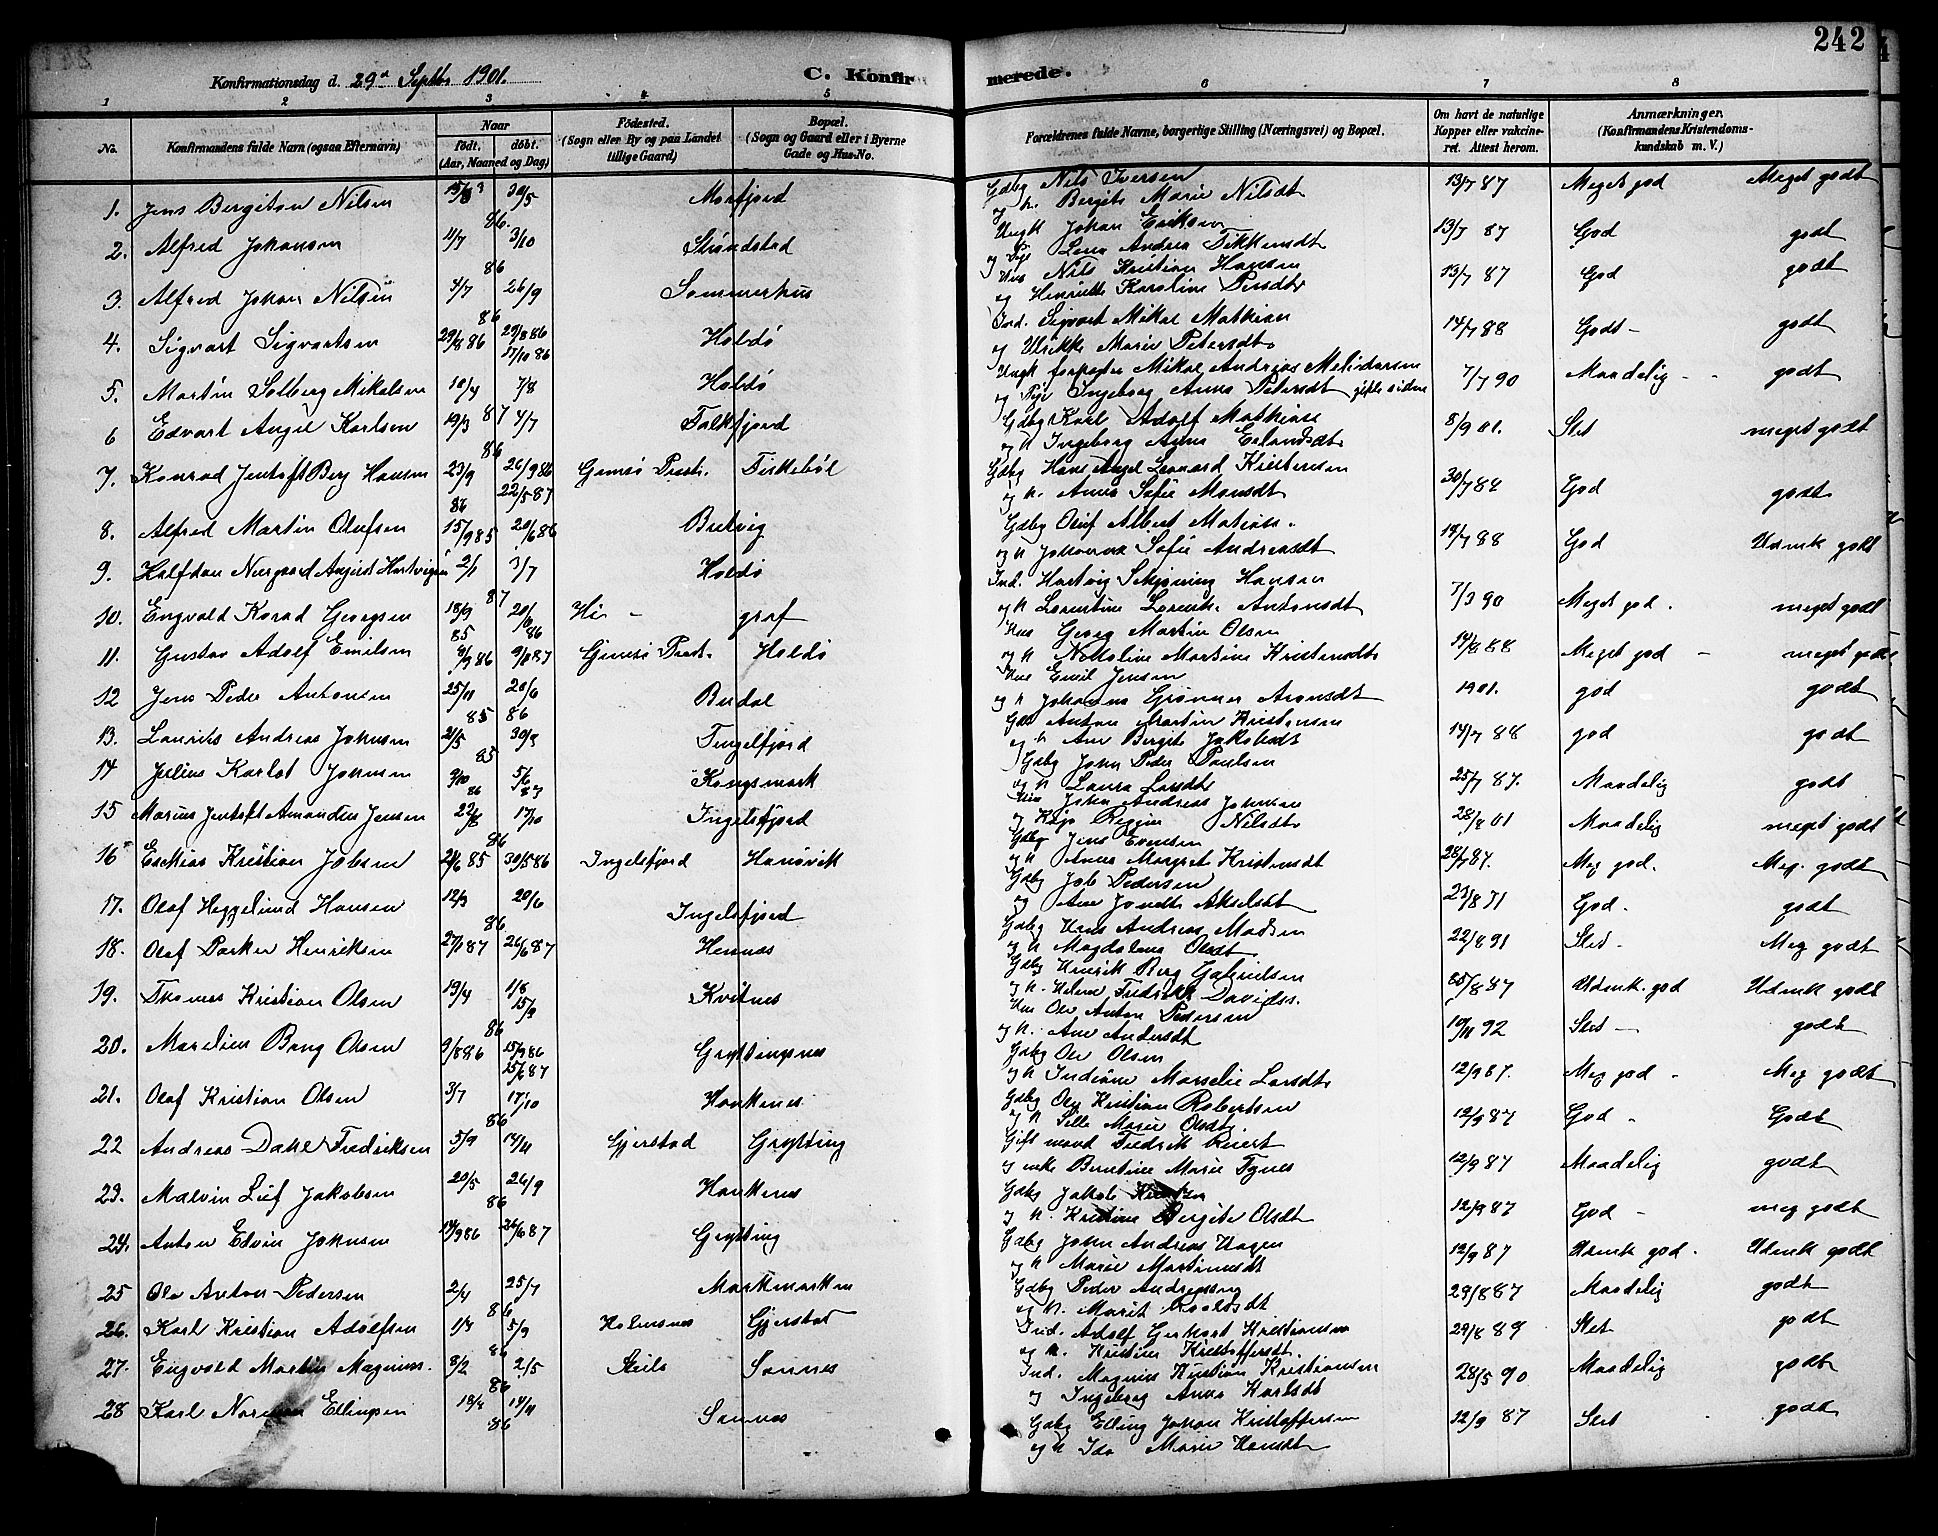 242
Konfirmationsdag d. 29de Septbr 1901.
C. Konfirmerede.
1 2 3 4 5 6 7 8
No.
Konfirmandens fulde Navn (ogsaa Efternavn)
Naar
født. døbt.
(Aar, Maaned og Dag)
Fødested.
(Sogn eller By og paa Landet
tillige Gaard)
Bopæl.
(Sogn og Gaard eller i Byerne
Gade og Hus-No.
Forældrenes fulde Navne, borgerlige Stilling (Næringsvei) og Bopæl.
Om havt de naturlige
Kopper eller vakcine-
ret. Attest herom.
Anmærkninger.
(Konfirmandens Kristendoms-
kundskab m. V.)
1. Jens Bergiton Nilsen 30/5 86 Morfjord Gdbg Nils Iversen og h. Bergite Marie Nilsdt 13/7 87 Meget god Meget godt
2. Alfred Johansen 4/7 3/10 86 Strøndstad Ungk Johan Eriksen og Pige Lena Andrea Fikkensdt 13/7 87 God godt
3. Alfred Johan Nilsen 4/7 26/9 86 Sommerhus Hus Nils Kristian Hansen og Henriette Karoline 13/7 87 God godt
4. Sigvart Sigvartsen 29/8 86 29/8 86 17/10 86 Holdø Ind. Sigvart Mikal Mathias og Ulrikke Marie Petersdt 14/7 88 Godt - godt
5. Martin Solberg Mikalsen 10/4 7/8 87 Holdø Ungk forpagter Mikal Andreas og Pige Ingeborg Anna Petersdt gifte siden 7/7 90 Maadelig - godt
6 Edvart Angel Karlsen 19/3 4/7 86 Falkfjord Gdbg Karl Adolf Mathias og h Ingeborg Anna Erlandsdt 8/9 01. Slet meget godt
7. Konrad Jentoft Berg Hansen 23/9 86 26/9 86 22/5 87 Gimsø Prest. Firkebøl Gdbg Hans Angel Leonard Kristensen og h. Anna Sofie Monsdt God godt
8. Alfred Martin Olufsen 15/9 85 20/6 86 Butvig Gdbg Oluf Albert og h Johanna Sofie Andreasdt 19/7 88 God Udmk godt
9. Halfdan Nergaard August Hartvigsen 2/1 3/7 87 Holdø Ind. Hartvig Schjøning Hansen og h Lorentine Antonsdt 7/3 90 Meget god. meget godt
10. Engvald Korad Georgsen 18/9 85 20/6 86 Hi - graf Hus Georg Martin Olsen og h Nikoline Martine Kristensdt 14/8 88 Meget god - meget godt
11. Gustav Adolf Emilsen 8/9 86 9/8 87 Gimsø Prest. Holdø Hus Emil Jensen og h Johanna Grønner Aronsdt 1901. god godt
12 Jens Peder Antonsen 25/11 85 20/6 86 Budal Gdbr Anton Martin Kristensen og h Ane Bergite Jakobsdt 14/7 88 god godt
13. Laurits Andreas Johnsen 21/5 85 30/3 Ingelfjord Gdbg John Peder Paulsen og h Laura Larsdt 25/7 87. Maadelig godt
14 Julius Karlot Johnsen 9/10 86 5/6 87 Kongsmark Hus John Andreas Johnsen og Kaja Regine Nilsdt 28/8 01 Maadelig meget godt
15 Marius Jentoft Amandus Jensen 22/8 17/10 86 Ingelsfjord Gdbg Jens Evensen og h Anna Margret Kristensdt 28/7 87. Meg god. Meg. godt
16 Esekias Kristian Jobsen 21/6 85 30/5 86 Ingelsfjord Hanøvik Gdbg Job Pedersen og Ane Jondt Akselsdt 23/8 91 God. godt
17. Olaf Heggelund Hansen 12/3 20/6 86 Ingelsfjord Gdbg Hans Andreas Madsen og h Magdalena Olsdt 22/8 91 Slet. Meg godt
18. Olaf Parker Henriksen 27/1 87 26/6 87 Hennes Gdbg Henrik Berg Gabrielsen og h. Helene Fredrikke Davids. 25/8 87 Udmk. god Udmk godt
19. Thomas Kristian Olsen 19/4 1/8 15/9 86 Kvitnes Hus Ole Anton Pedersen og h. Ane Andersdt 10/11 92 Slet - godt
20. Marelius Bang Olsen 9/8 86 15/9 86 15/6 87 Gryttingsnes Gdbg Ole Olsen og h Indiane Marselie Larsdt 12/9 87. Meg god - Meg godt
21. Olaf Kristian Olsen 3/7 17/10 86 Haukenes Gdbg Ole Kristian Robertsen og h Pelle Marie Olsdt 12/9 87 God - Godt
22 Andreas Dahl Fredriksen 5/9 14/11 Gjerstad Grytting Gift mand Fredrik Kviert og enke Berntine Marie Fynes 12/9 87 Maadelig godt
23. Malvin Leif Jakobsen 20/5 26/9 86 Haukenes Gdbg Jakob og h. Kristine Bergite Olsdt 12/9 87 God - meg godt
24. Anton Edvin Johnsen 14/9 86 26/6 87 Grytting Gdbg John Andreas Hagen og h Marie Martinusdt 12/9 87 Udmk god. Udmk godt
25 Ole Anton Pedersen 2/4 25/7 86 Markmarken Gdbg Peder Andreassen og h. Marit Roaldsdt 29/8 87 Maadelig godt
26. Karl Kristian Adolfsen 1/3 5/9 86 Holmsnes Gjerstad Ind. Adolf Gerhart Kristiansen og h. Kristine Kristoffersdt. 29/8 89 Slet godt
27. Engvald Martin Magnus. 8/2 2/5 86 Steilo Sannes Ind. Magnus Kristian Kristiansen og Ingeborg Anna Karlsdt 28/5 90 Maadelig godt
28 Karl Ellingsen 18/8 14/11 86 Sannes Gdbg Elling Johan Kristoffersen og h Ida Marie Hansdt 12/9 87 Slet godt